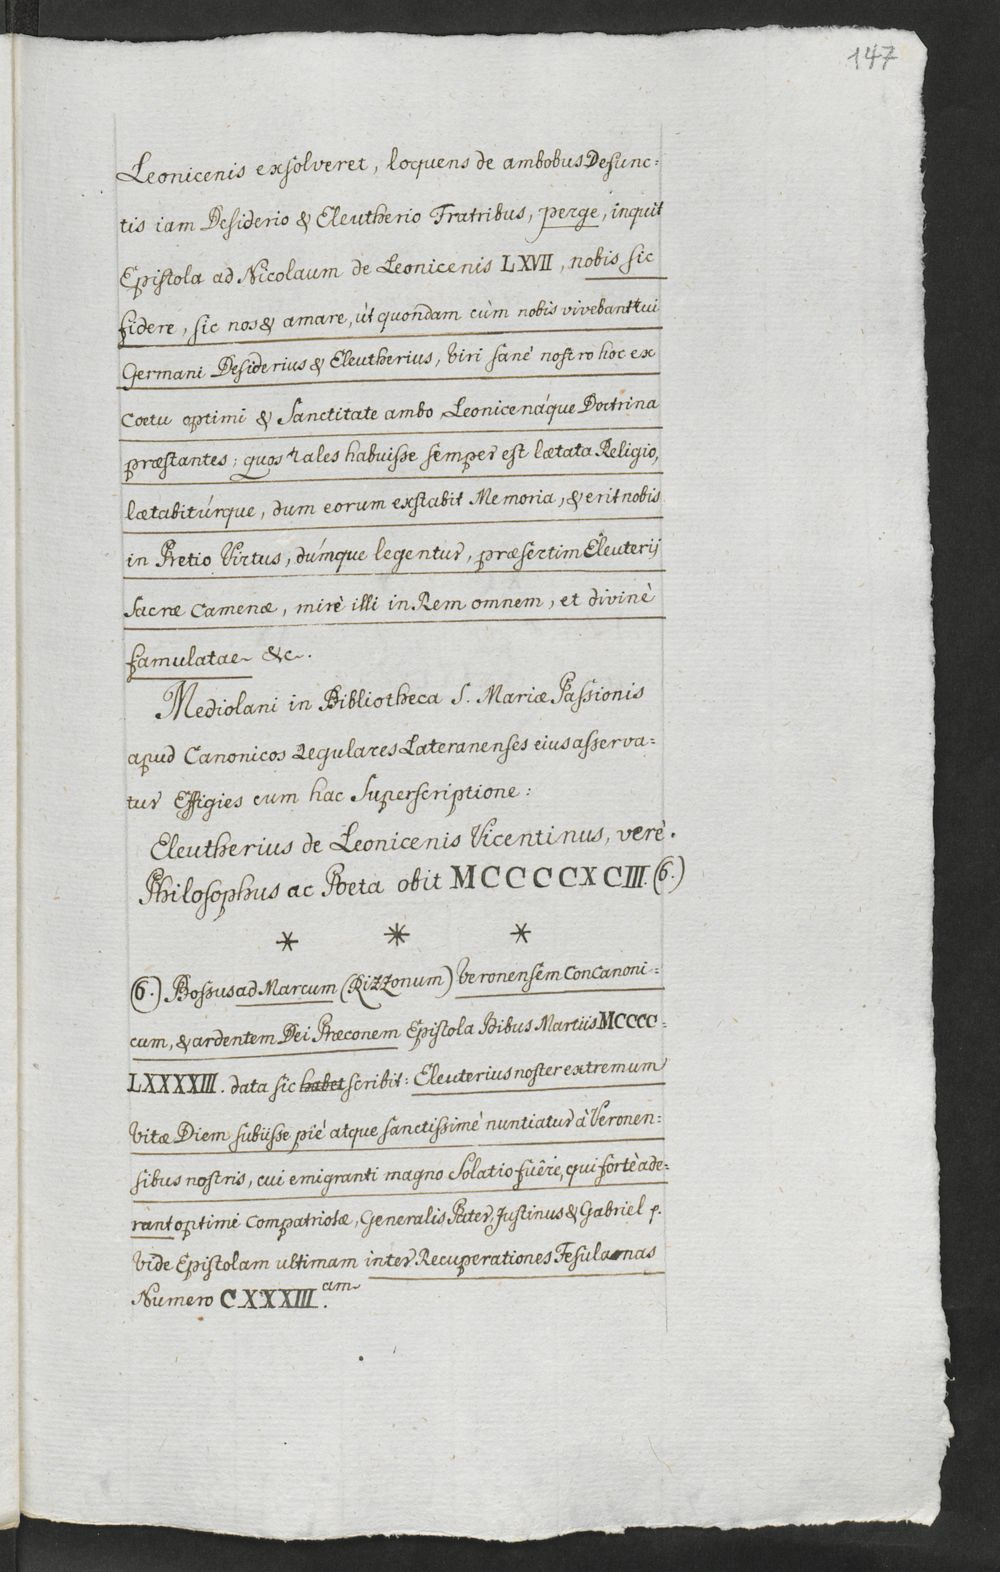 147
Leonicenis exsolveret, loquens de ambobus Defunc=
tis iam Desiderio & Eleutherio Fratribus, perge, inquit
Epistola ad Nicolaum de Leonicenis LXVII, nobis sic
fidere, sic nos & amare, út quondam cùm nobis vivebant tui
Germani Desiderius & Eleutherius, Viri sanè nostro hoc ex
Coetu optimi & Sanctitate ambo, Leonicenáque Doctrina
præstantes; quos tales habuisse semper est lætata Religio,
lætabitúrque, dum eorum exstabit Memoria, & erit nobis
in Pretio Virtus, dúmque legentur, præsertim Eleuterij
sacræ Camenæ, mirè illi in Rem omnem, et divinè
famulatae &c.
Mediolani in Bibliotheca S. Mariæ Passionis
apud Canonicos Regulares Lateranenses eius asserva=
tur Effigies cum hac Superscriptione:
Eleutherius de Leonicenis Vicentinus, verè.
Philosophus ac Poeta obit MCCCCXCIII. (6.)
* * *
(6.) Bossus ad Marcum (Rizzonum) Veronensem ConCanoni=
cum, & ardentem Dei Præconem Epistola Idibus Martiis MCCCC=
LXXXXIII. data sic habet scribit: Eleuterius noster extremum
Vitæ Diem subiisse piè atque sanctissimè nuntiatur à Veronen=
sibus nostris, cui emigranti magno Solatio fuêre, qui fortè ade=
rant optimi Compatriotæ, Generalis Pater, Justinus & Gabriel p.
Vide Epistolam ultimam inter Recuperationes Fesulanas
Numero CXXXIII.am